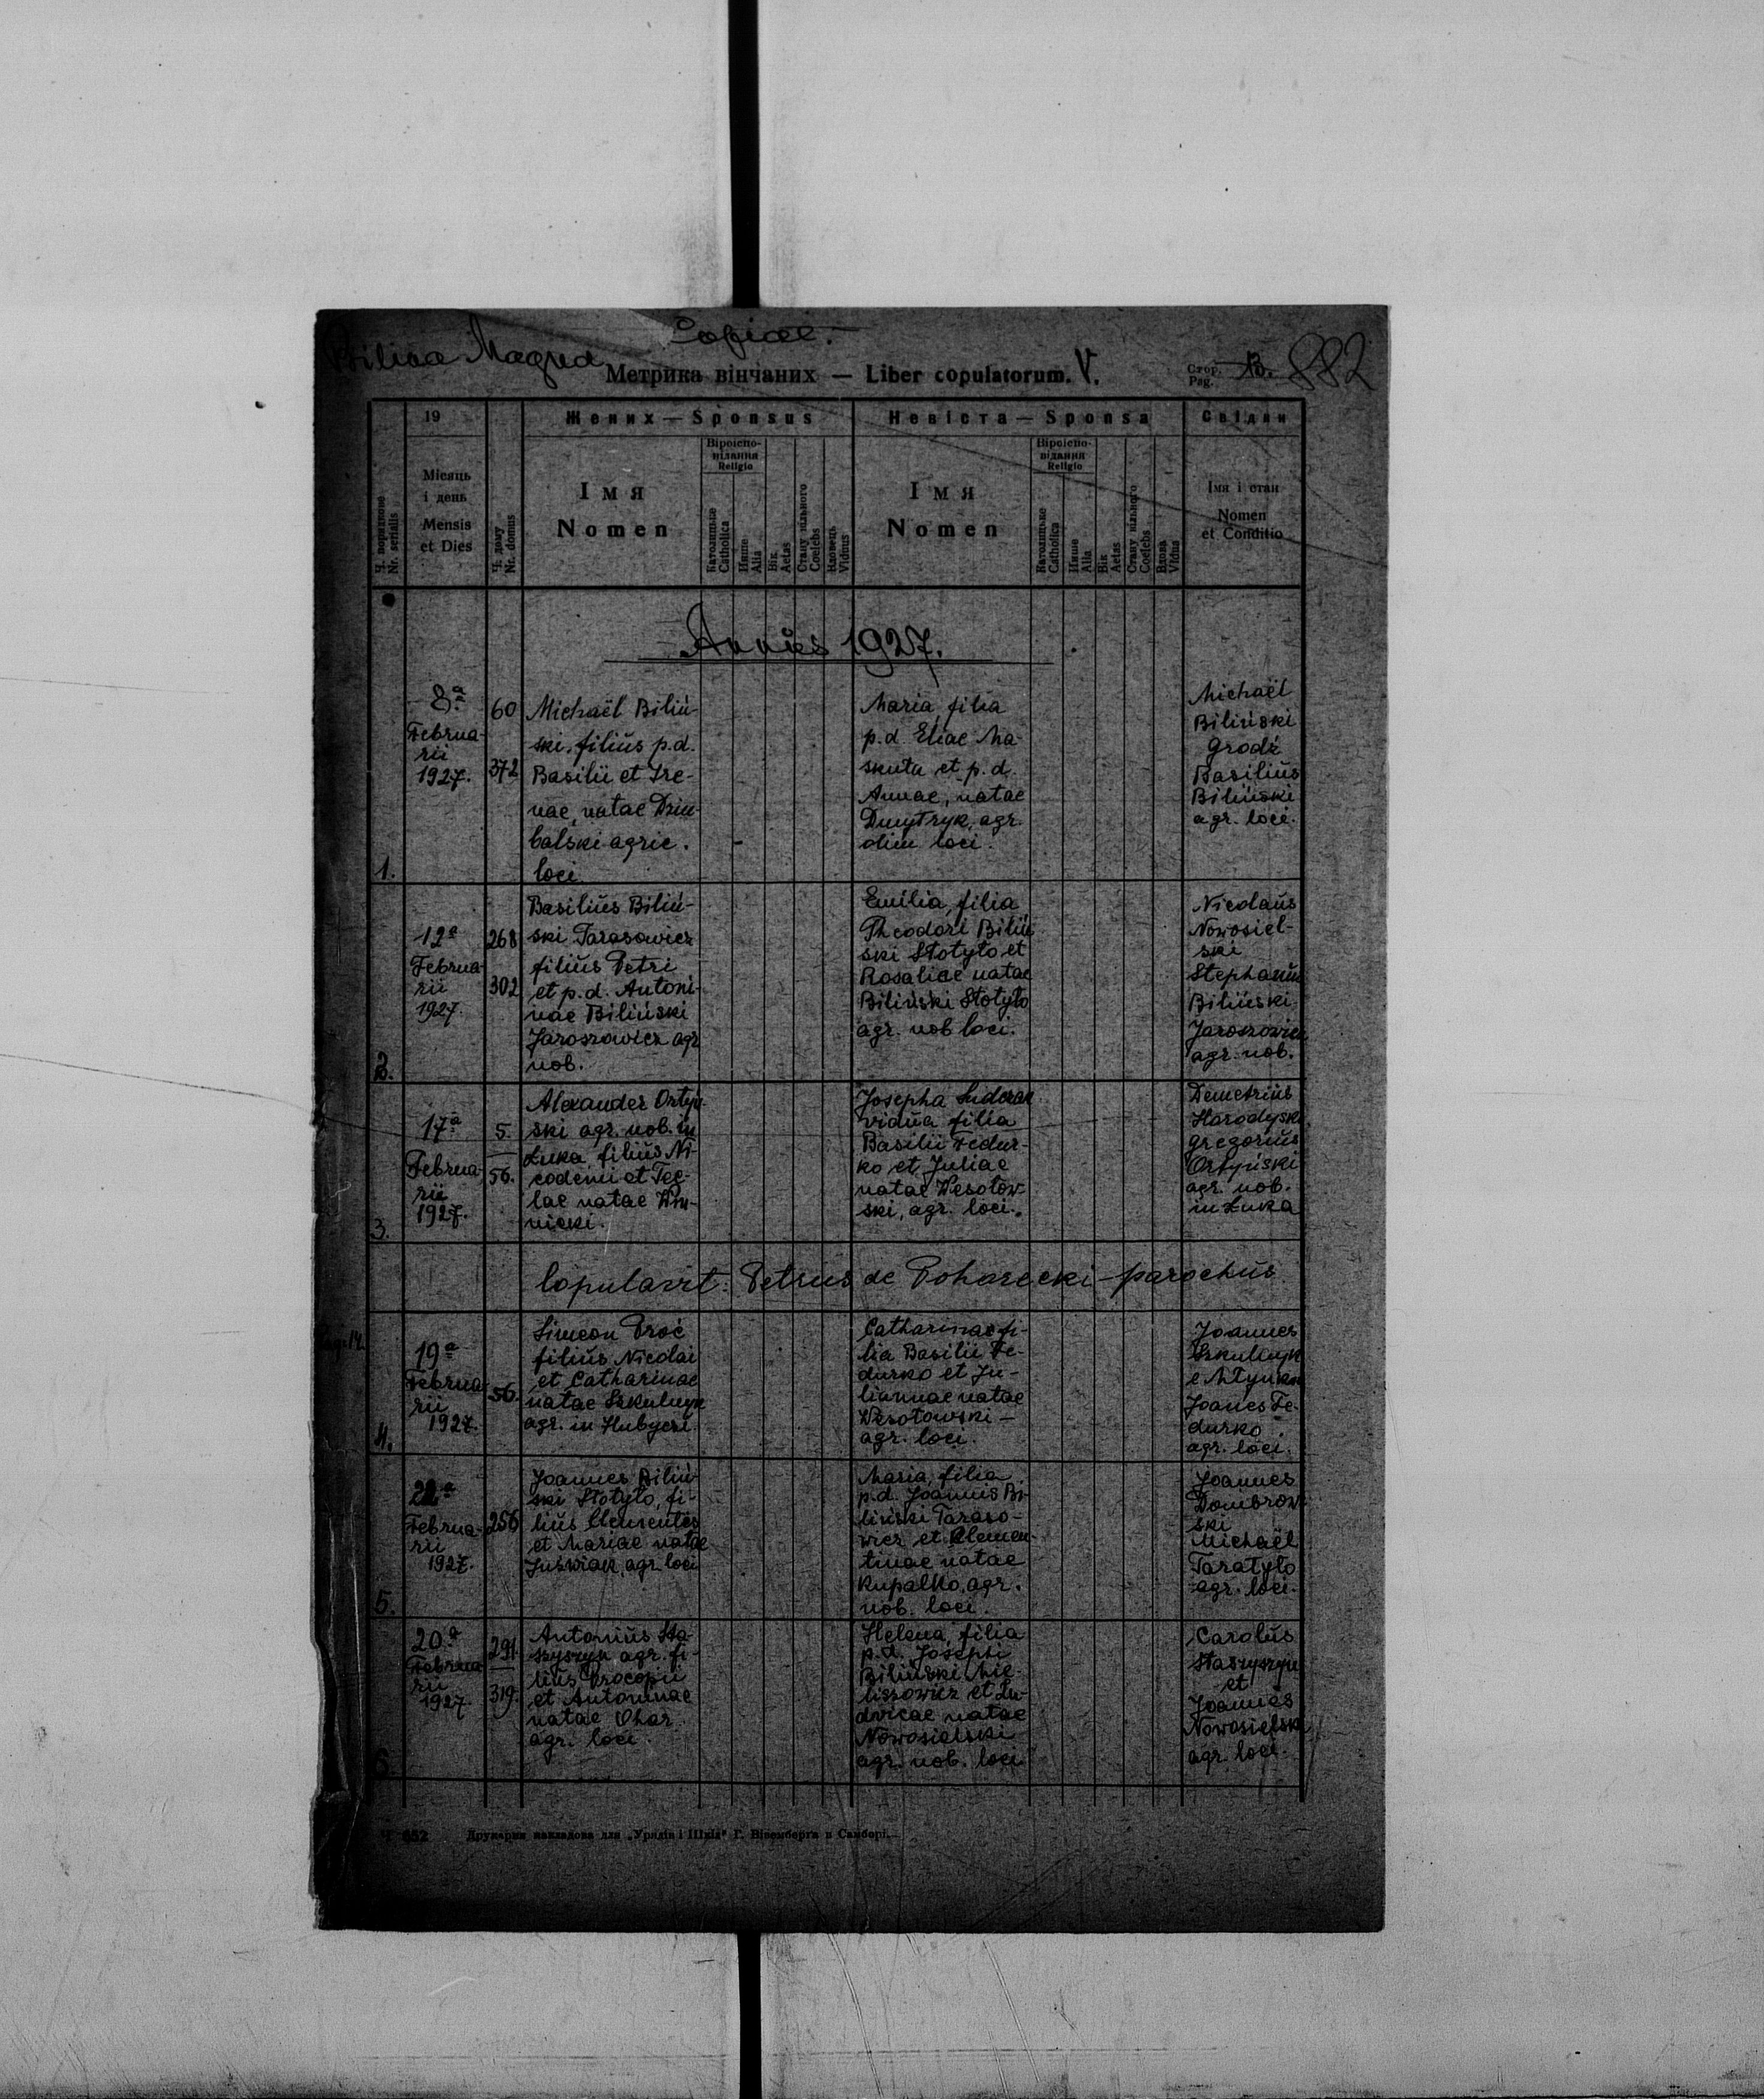 Bilina Magna
Copiae.
Метрика вінчаних — Liber copulatorum. V.
Стор. Pag. 13. 882
Ч. порядкове Nr. serialis
19
Місяць
і день
Mensis
et Dies
Ч. дому Nr. domus
Жених — Sponsus
Імя
Nomen
Віроіспо-
відання
Religio
Католицьке Catholica
Инше Alia
Вік Aetas
Стану вільного Coelebs
Вдовець Viduus
Невіста — Sponsa
Імя
Nomen
Віроіспо-
відання
Religio
Католицьке Catholica
Инше Alia
Вік Aetas
Стану вільного Coelebs
Вдова Vidua
Свідки
Імя і стан
Nomen
et Conditio
Annus 1927.
1.
8ª
Februa-
rii
1927.
60
372
Michaël Biliń-
ski, filius p.d.
Basilii et Ire-
nae, natae Dziu-
balski agric.
loci
Maria, filia
p.d. Eliae Ma-
skuta et p.d.
Annae, natae
Dmytryk, agr.
olim loci.
Michaël
Biliński
Grodź
Basilius
Biliński
agr. loci.
2.
12ª
Februa-
rii
1927.
268
302
Basilius Biliń-
ski Tarasowicz
filius Petri
et p.d. Antoni-
nae Biliński
Jaroszowicz agr
nob.
Emilia, filia
Theodori Biliń
ski Stotyło et
Rosaliae natae
Biliński Stotyło
agr. nob loci.
Nicolaus
Nowosiel-
ski
Stephanus
Biliński
Jaroszowicz
agr. nob.
3.
17ª
Februa-
rii
1927.
5.
56.
Alexander Ortyń-
ski agr. nob. in
Łuka filius Ni-
codemi et Tec-
lae natae Win-
nicki.
Josepha Sidorak
vidua filia
Basilii Fedur-
ko et Juliae
natae Wesołow-
ski, agr. loci.
Demetrius
Horodysk
Gregorius
Ortyński
agr. nob.
in Łuka
Copulavit: Petrus de Pohorecki - parochus
4.
19ª
Februa-
rii
1927.
56.
Simeon Proć
filius Nicolai
et Catharinae
natae Szkulnyk
agr. in Hubyczi
Catharinae fi-
lia Basilii Fe-
durko et Ju-
liannae natae
Wesołowski —
agr. loci.
Joannes
Szkulnyk
Joanes Fe-
durko
agr. loci.
5.
22ª
Februa-
rii
1927.
256
Joannes Biliń-
ski Stotyło, fi-
lius Clementes
et Mariae natae
Juświak, agr. loci
Maria, filia
p.d. Joannis Bi-
liński Taraso-
wicz et Clemen-
tinae natae
Kupalko, agr.
nob. loci.
Joannes
Dombrow-
ski
Michaël
Taratyło
agr. loci.
6.
20ª
Februa
rii
1927
291.
319.
Antonius Sta-
szyszyn agr. fi-
lius Procopii
et Antoninae
natae Ohar
agr. loci.
Helena, filia
p.d. Josephi
Biliński Mie-
liszowicz et Lu-
dvicae natae
Nowosielski
agr. nob. loci
Carolus
Staszyszyn
et
Joannes
Nowosielski
agr. loci.
Друкарня накладова для „Урядів і Шкіл" Г. Вісенберга в Самборі.—